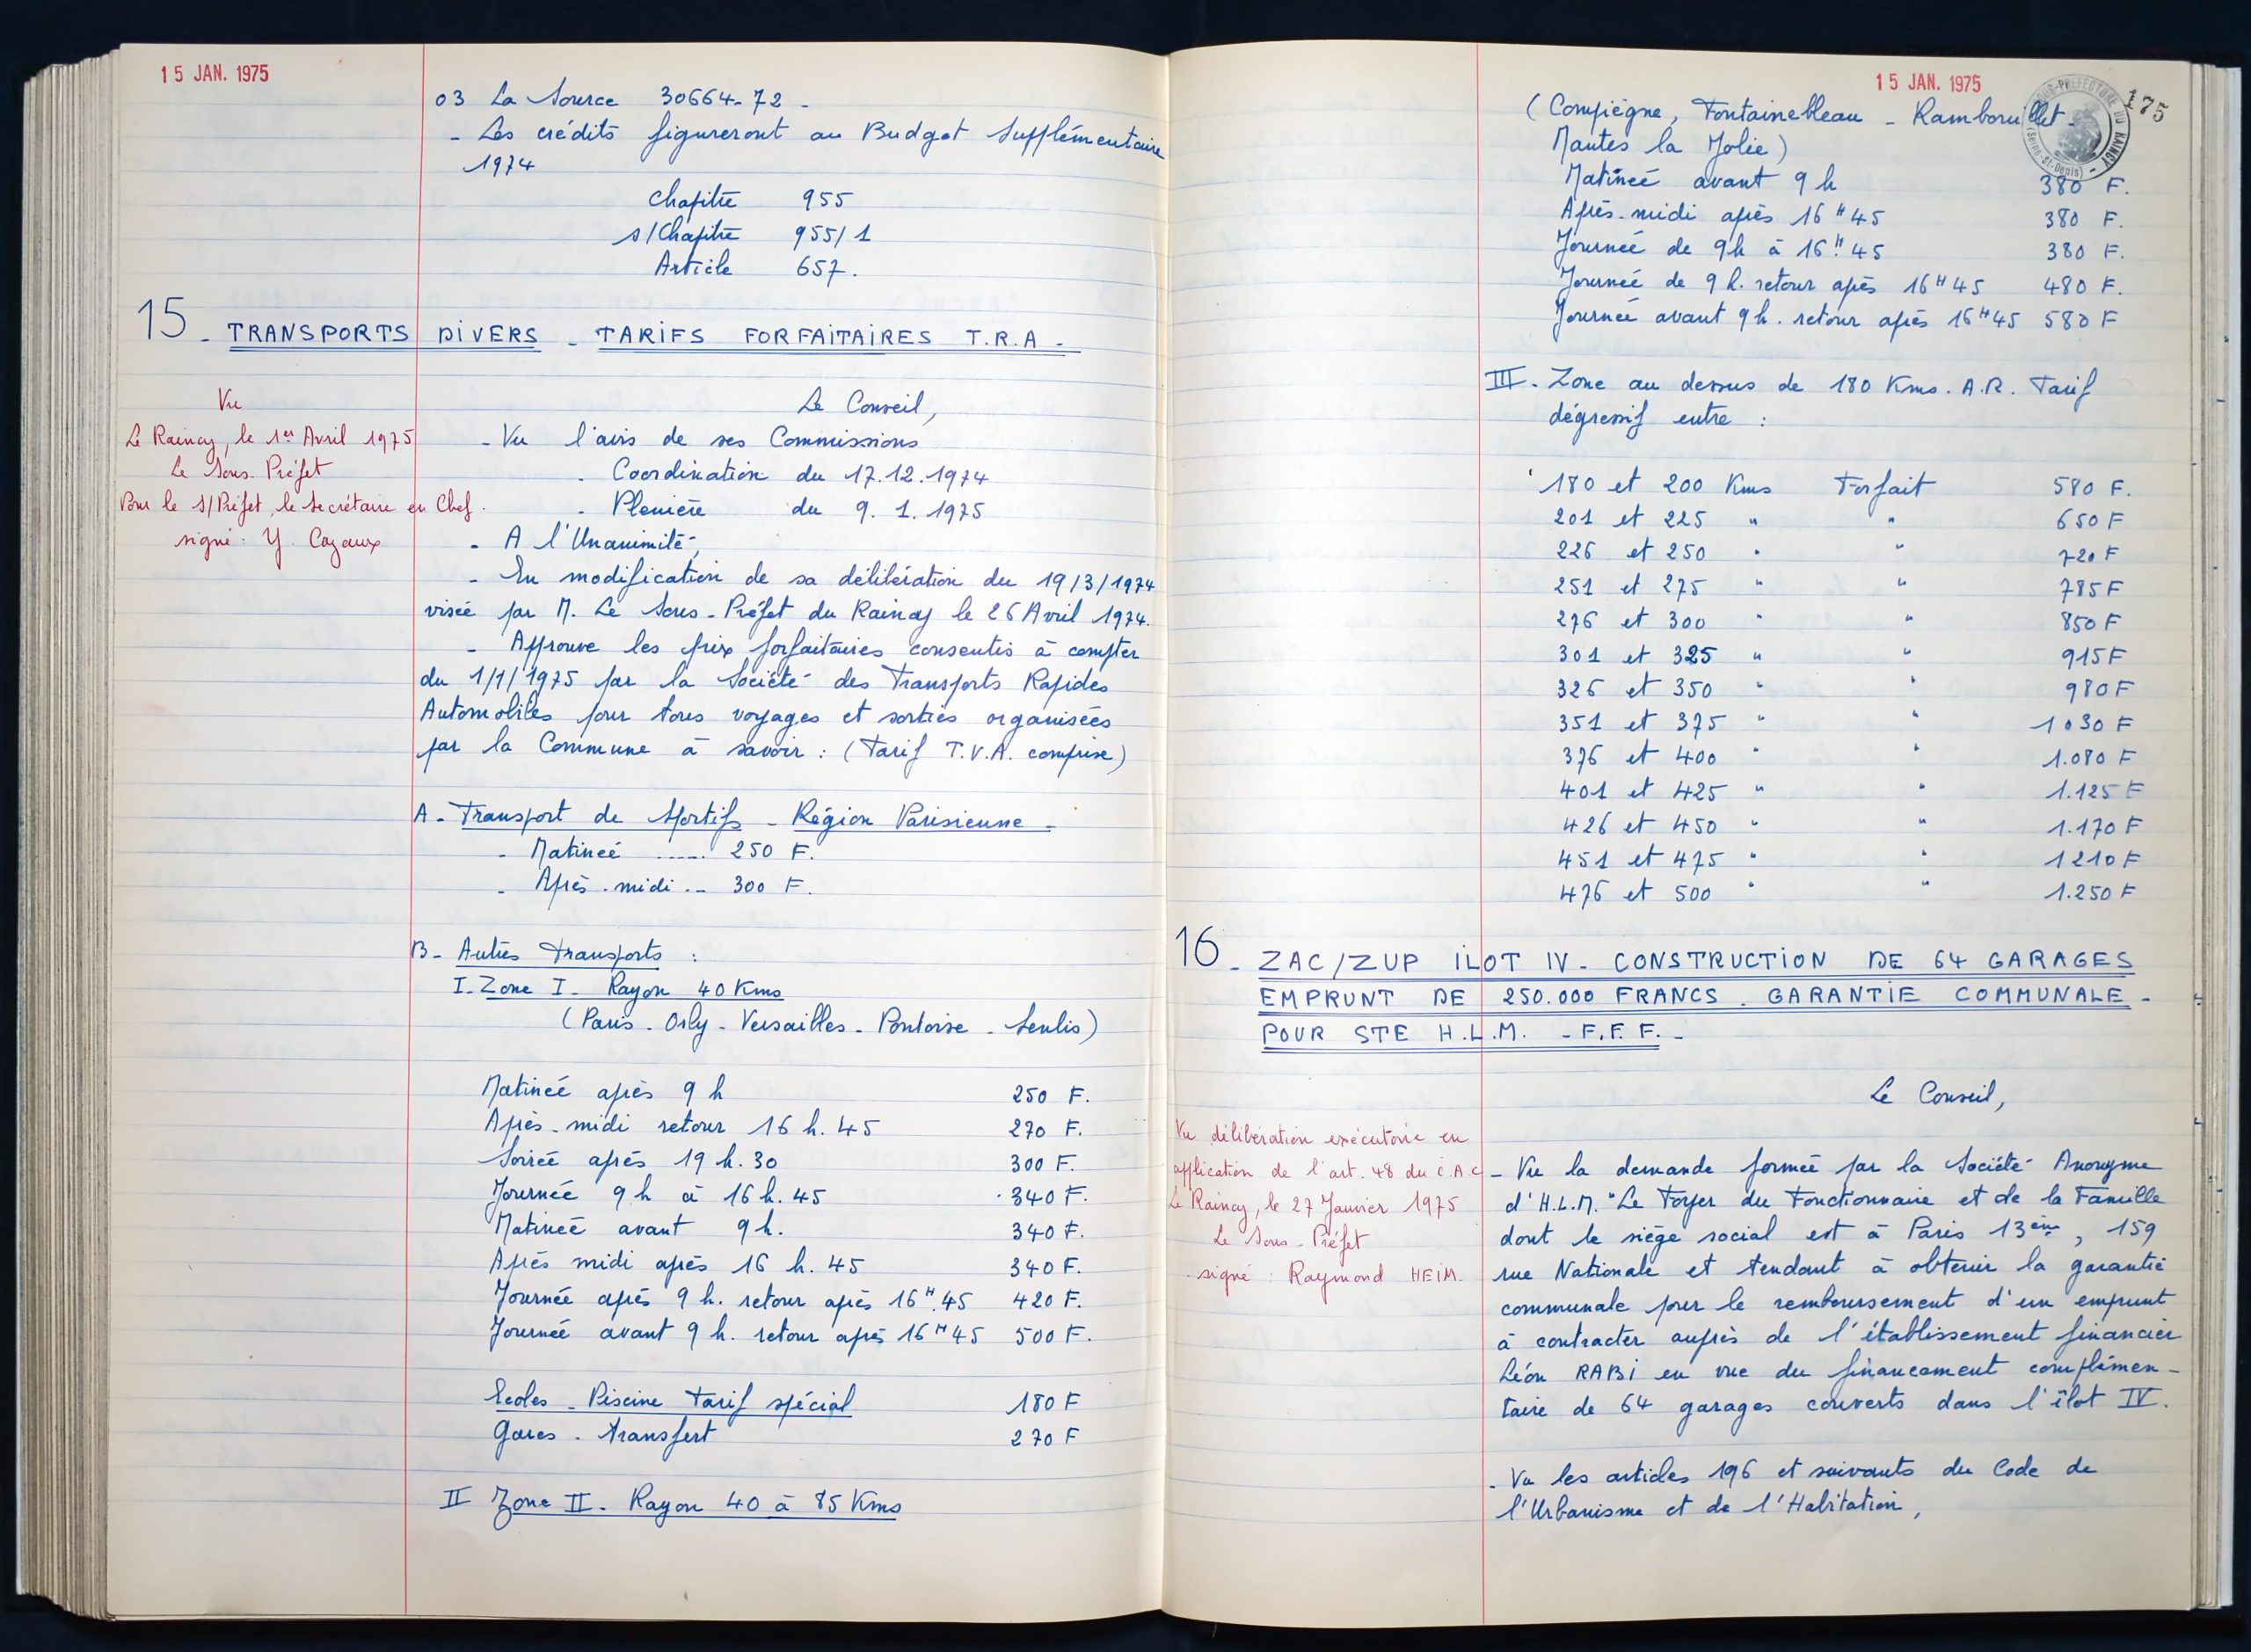 15 JAN. 1975
03 La Source 30664-72 -
- Les crédits figureront au Budget Supplémentaire
1974
Chapitre 955
s/Chapitre 955/1
Article 657.
15 - TRANSPORTS DIVERS - TARIFS FORFAITAIRES T.R.A -
Vu
Le Raincy, le 1er Avril 1975
Le Sous-Préfet
Pour le s/Préfet, le secrétaire en Chef.
signé : Y. Cazaux
Le Conseil,
- Vu l'avis de ses Commissions
- Coordination du 17.12.1974
- Plenière du 9.1.1975
- A l'Unanimité,
- En modification de sa délibération du 19/3/1974
visée par M. Le Sous-Préfet du Raincy le 26 Avril 1974.
- Approuve les prix forfaitaires consentis à compter
du 1/1/1975 par la Société des Transports Rapides
Automobiles pour tous voyages et sorties organisées
par la Commune à savoir : (Tarif T.V.A. comprise)
A - Transport de Sportifs - Région Parisienne -
- Matinée ...... 250 F.
- Après-midi ... 300 F.
B - Autres Transports :
I. Zone I - Rayon 40 Kms
(Paris - Orly - Versailles - Pontoise - Senlis)
Matinée après 9 h 250 F.
Après-midi retour 16 h. 45 270 F.
Soirée après 19 h. 30 300 F.
Journée 9 h à 16 h. 45 340 F.
Matinée avant 9 h. 340 F.
Après midi après 16 h. 45 340 F.
Journée après 9 h. retour après 16 H. 45 420 F.
Journée avant 9 h. retour après 16 H 45 500 F.
Ecoles - Piscine Tarif spécial 180 F
Gares - Transfert 270 F
II Zone II - Rayon 40 à 85 Kms
15 JAN. 1975
175
SOUS-PRÉFECTURE DU RAINCY
(Seine-St-Denis)
(Compiègne, Fontainebleau - Rambouillet -
Mantes la Jolie)
Matinée avant 9 h 380 F.
Après-midi après 16 H 45 380 F.
Journée de 9h à 16 H 45 380 F.
Journée de 9 h. retour après 16 H 45 480 F.
Journée avant 9 h. retour après 16 H 45 580 F
III - Zone au dessus de 180 Kms. A.R. Tarif
dégressif entre :
180 et 200 Kms Forfait 580 F.
201 et 225 " " 650 F
226 et 250 " " 720 F
251 et 275 " " 785 F
276 et 300 " " 850 F
301 et 325 " " 915 F
326 et 350 " " 980 F
351 et 375 " " 1030 F
376 et 400 " " 1.080 F
401 et 425 " " 1.125 F
426 et 450 " " 1.170 F
451 et 475 " " 1210 F
476 et 500 " " 1.250 F
16 - ZAC/ZUP ILOT IV - CONSTRUCTION DE 64 GARAGES
EMPRUNT DE 250.000 FRANCS - GARANTIE COMMUNALE -
POUR STE H.L.M. - F.F.F. -
Le Conseil,
Vu délibération exécutoire en
application de l'art. 48 du C.A.C
Le Raincy, le 27 Janvier 1975
Le Sous-Préfet
signé : Raymond HEIM.
- Vu la demande formée par la Société Anonyme
d'H.L.M. "Le Foyer du Fonctionnaire et de la Famille
dont le siège social est à Paris 13ème, 159
rue Nationale et tendant à obtenir la garantie
communale pour le remboursement d'un emprunt
à contracter auprès de l'établissement financier
Léon RABI en vue du financement complémen-
taire de 64 garages couverts dans l'îlot IV.
- Vu les articles 196 et suivants du Code de
l'Urbanisme et de l'Habitation,